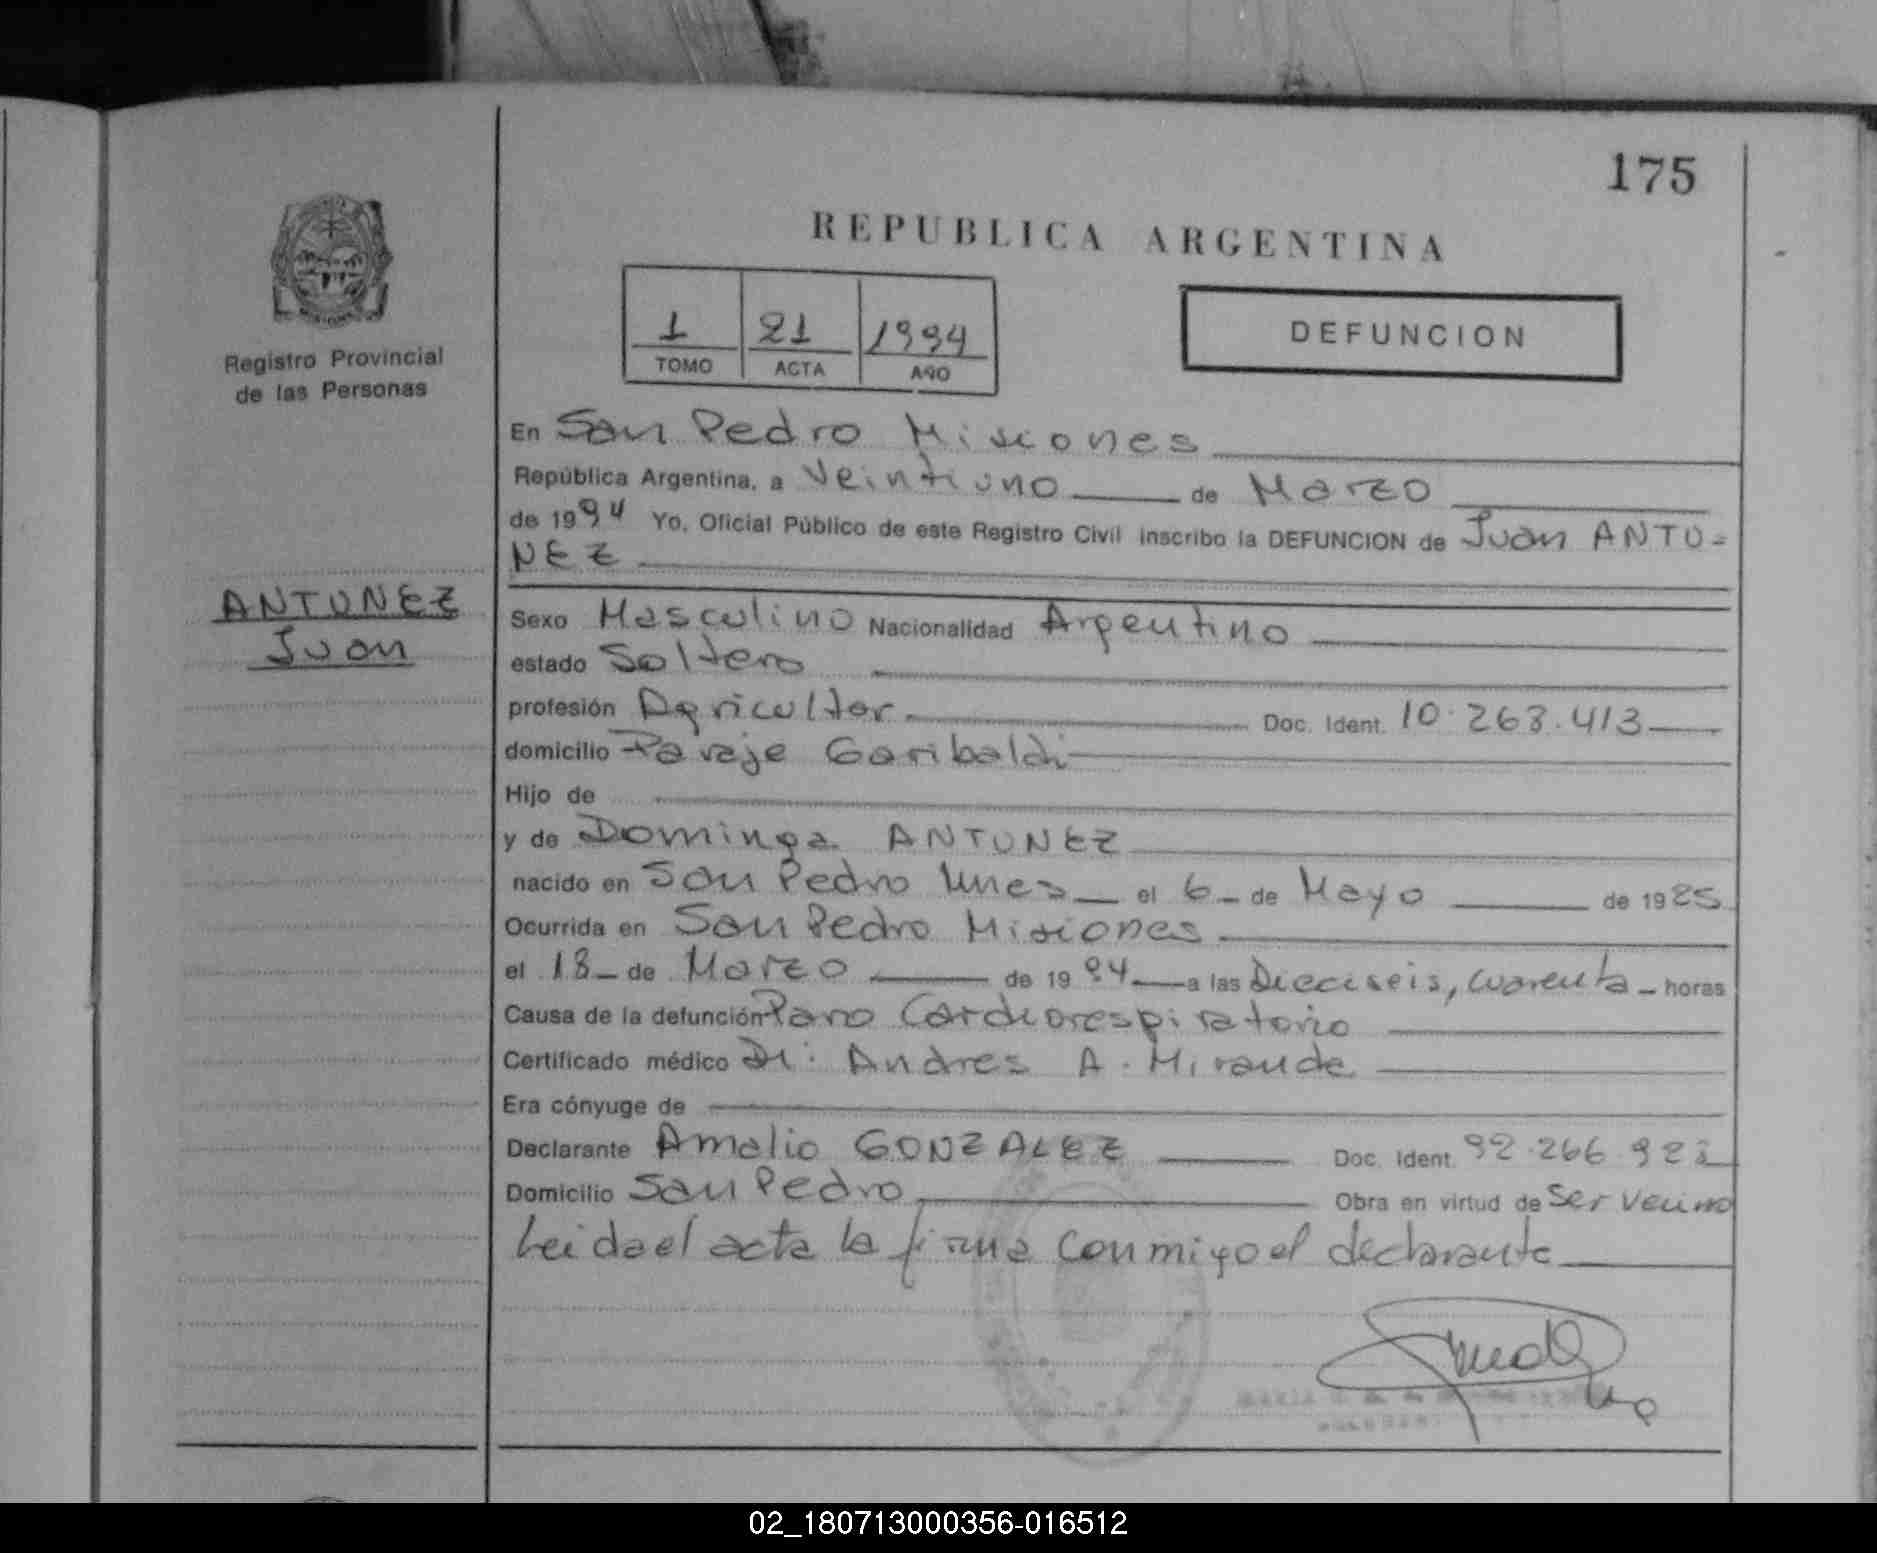 175
REPUBLICA ARGENTINA
Registro Provincial
de las Personas
1 21 1994
TOMO ACTA AÑO
DEFUNCION
En San Pedro Misiones
República Argentina, a Veintiuno de Marzo
de 1994 Yo, Oficial Público de este Registro Civil inscribo la DEFUNCION de Juan ANTU=
NEZ
ANTUNEZ
Juan
Sexo Masculino Nacionalidad Argentino
estado Soltero
profesión Agricultor Doc. Ident. 10.263.413
domicilio Paraje Garibaldi
Hijo de
y de Dominga ANTUNEZ
nacido en San Pedro Mnes el 6 de Mayo de 1925
Ocurrida en San Pedro Misiones
el 18 de Marzo de 1994 a las Dieciseis, cuarenta horas
Causa de la defunción Paro Cardiorespiratorio
Certificado médico Dr: Andres A. Miranda
Era cónyuge de
Declarante Amalio GONZALEZ Doc. Ident.
Domicilio San Pedro Obra en virtud de Ser Vecino
Leida el acta la firma conmigo el declarante
02_180713000356-016512